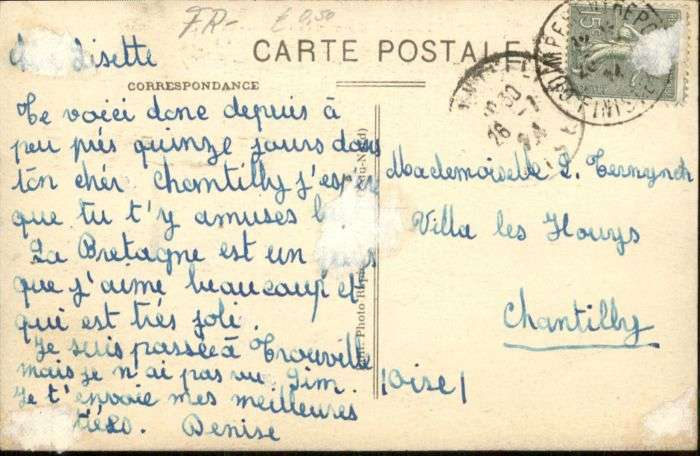 FR- £ 0,50
CARTE POSTALE
CORRESPONDANCE
Lisette
Te voici donc depuis à
peu près quinze jours dans
ton cher Chantilly j'espère
que tu t'y amuses
La Bretagne est un
que j'aime beaucoup et
qui est très joli.
Je suis passée à Trouville
mais je n'ai pas vu Jim.
Je t'envoie mes meilleures
Denise
Mademoiselle L. Ternynck
Villa les Houys
Chantilly
(Oise)
Photo